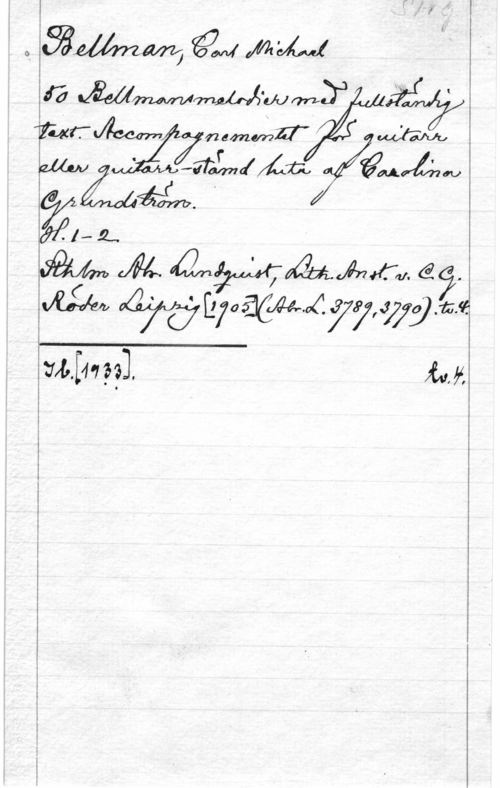 Bellman, Carl Michael
50 Bellmansmelodier med fullständig
text. Accompagnement för guitarr
eller guitarr-stämd luta af Carolina
Grundström.
H. 1-2.
Sthlm Abr. Lundquist, Lith. Anst. v. C. G.
Röder Leipzig [1905] (Abr. L. 3789, 3790). tv. 4:
Ib. [1933]. tv. 4.